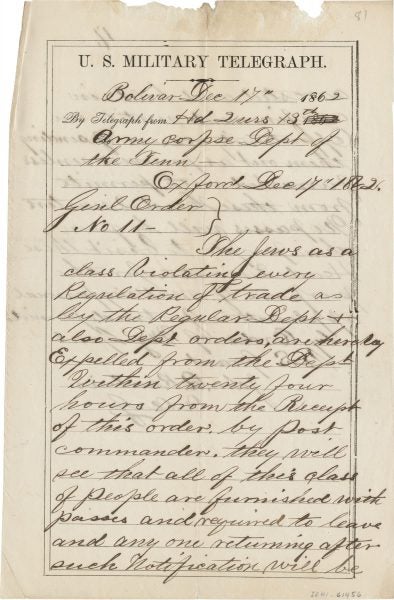 81
U. S. MILITARY TELEGRAPH.
Bolivar Dec 17th 1862
By Telegraph from Hd Qurs 13th
Army corpse Dept of
the Tenn
Oxford Dec 17th 1862.
Genl Order }
No 11- }
The Jews as a
class Violating every
Regulation of trade as
by the Regular Dept &
also Dept orders, are hereby
Expelled from the Dept
Within twenty four
hours from the Receipt
of this order. by post
commander. they will
see that all of this class
of people are furnished with
passes and required to leave
and any one returning after
such Notification will be